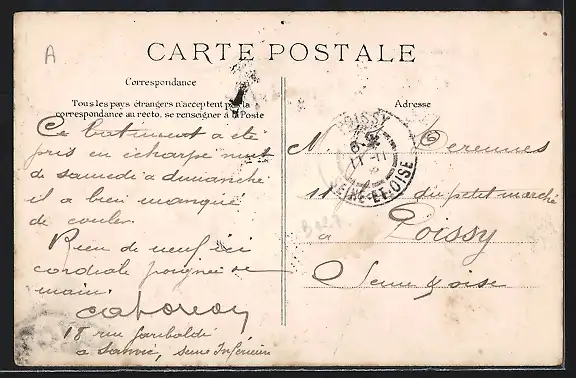 A
CARTE POSTALE
Correspondance
Tous les pays étrangers n'acceptent pas la
correspondance au recto. se renseigner à la Poste
Adresse
Ce batiment a été
pris en écharpe nuit
de samedi a dimanche
il a bien manqué
de couler.
Rien de neuf ici
cordiale poignée de
main.
18 rue Garibaldi
a Sanvic, Seine Inférieure
POISSY
11 - 11
SEINE-ET-OISE
M.
11 du petit marché
a Poissy
Seine & oise